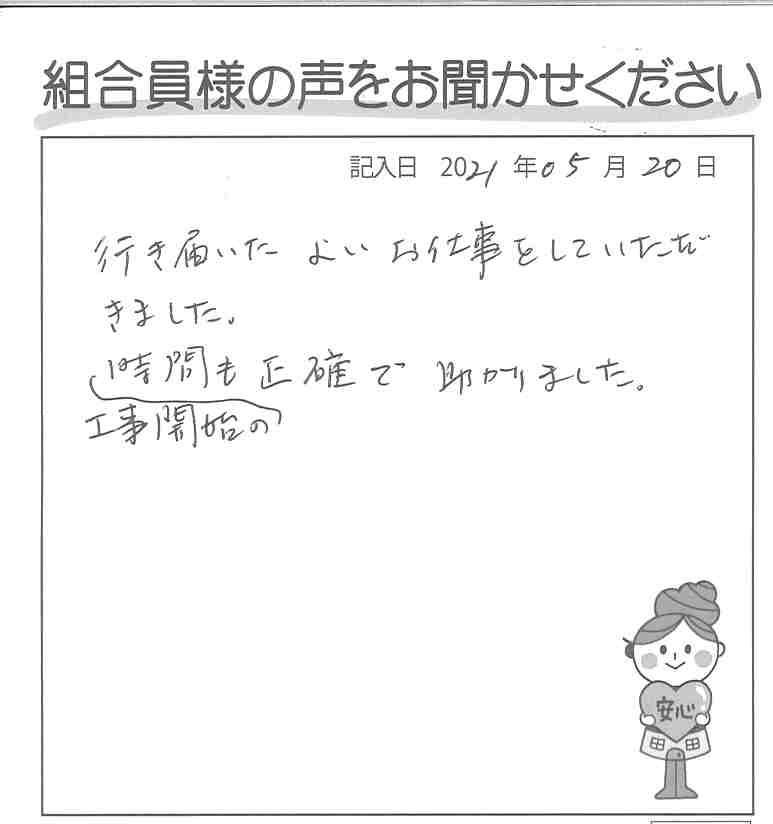 組合員様の声をお聞かせください
記入日 2021年05月20日
行き届いた よい お仕事をしていただ
きました。
時間も正確で 助かりました。
工事開始の
安心